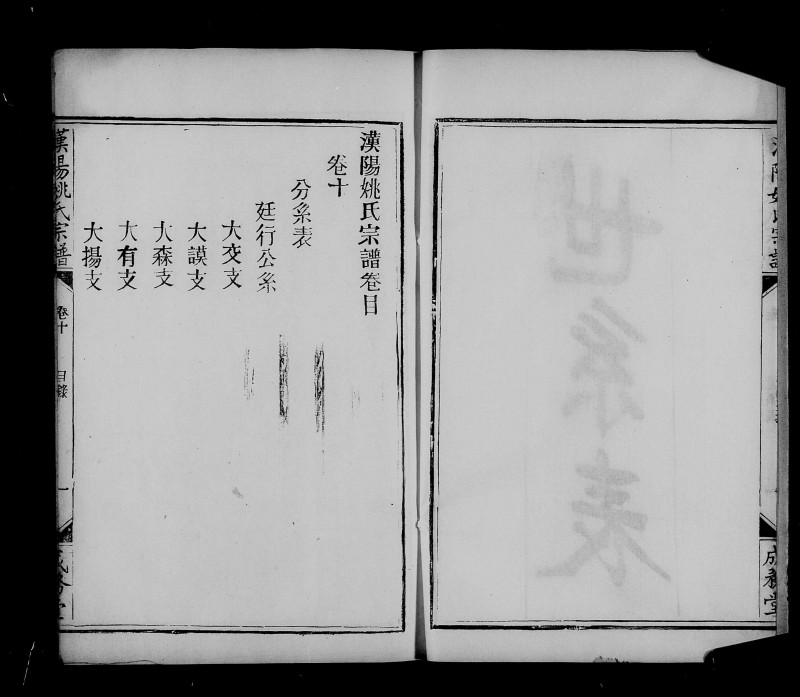 世系表
成務堂
漢陽姚氏宗譜卷目
卷十
分系表
廷行公系
大交支
大謨支
大森支
大有支
大揚支
漢陽姚氏宗譜
卷十
目錄
一